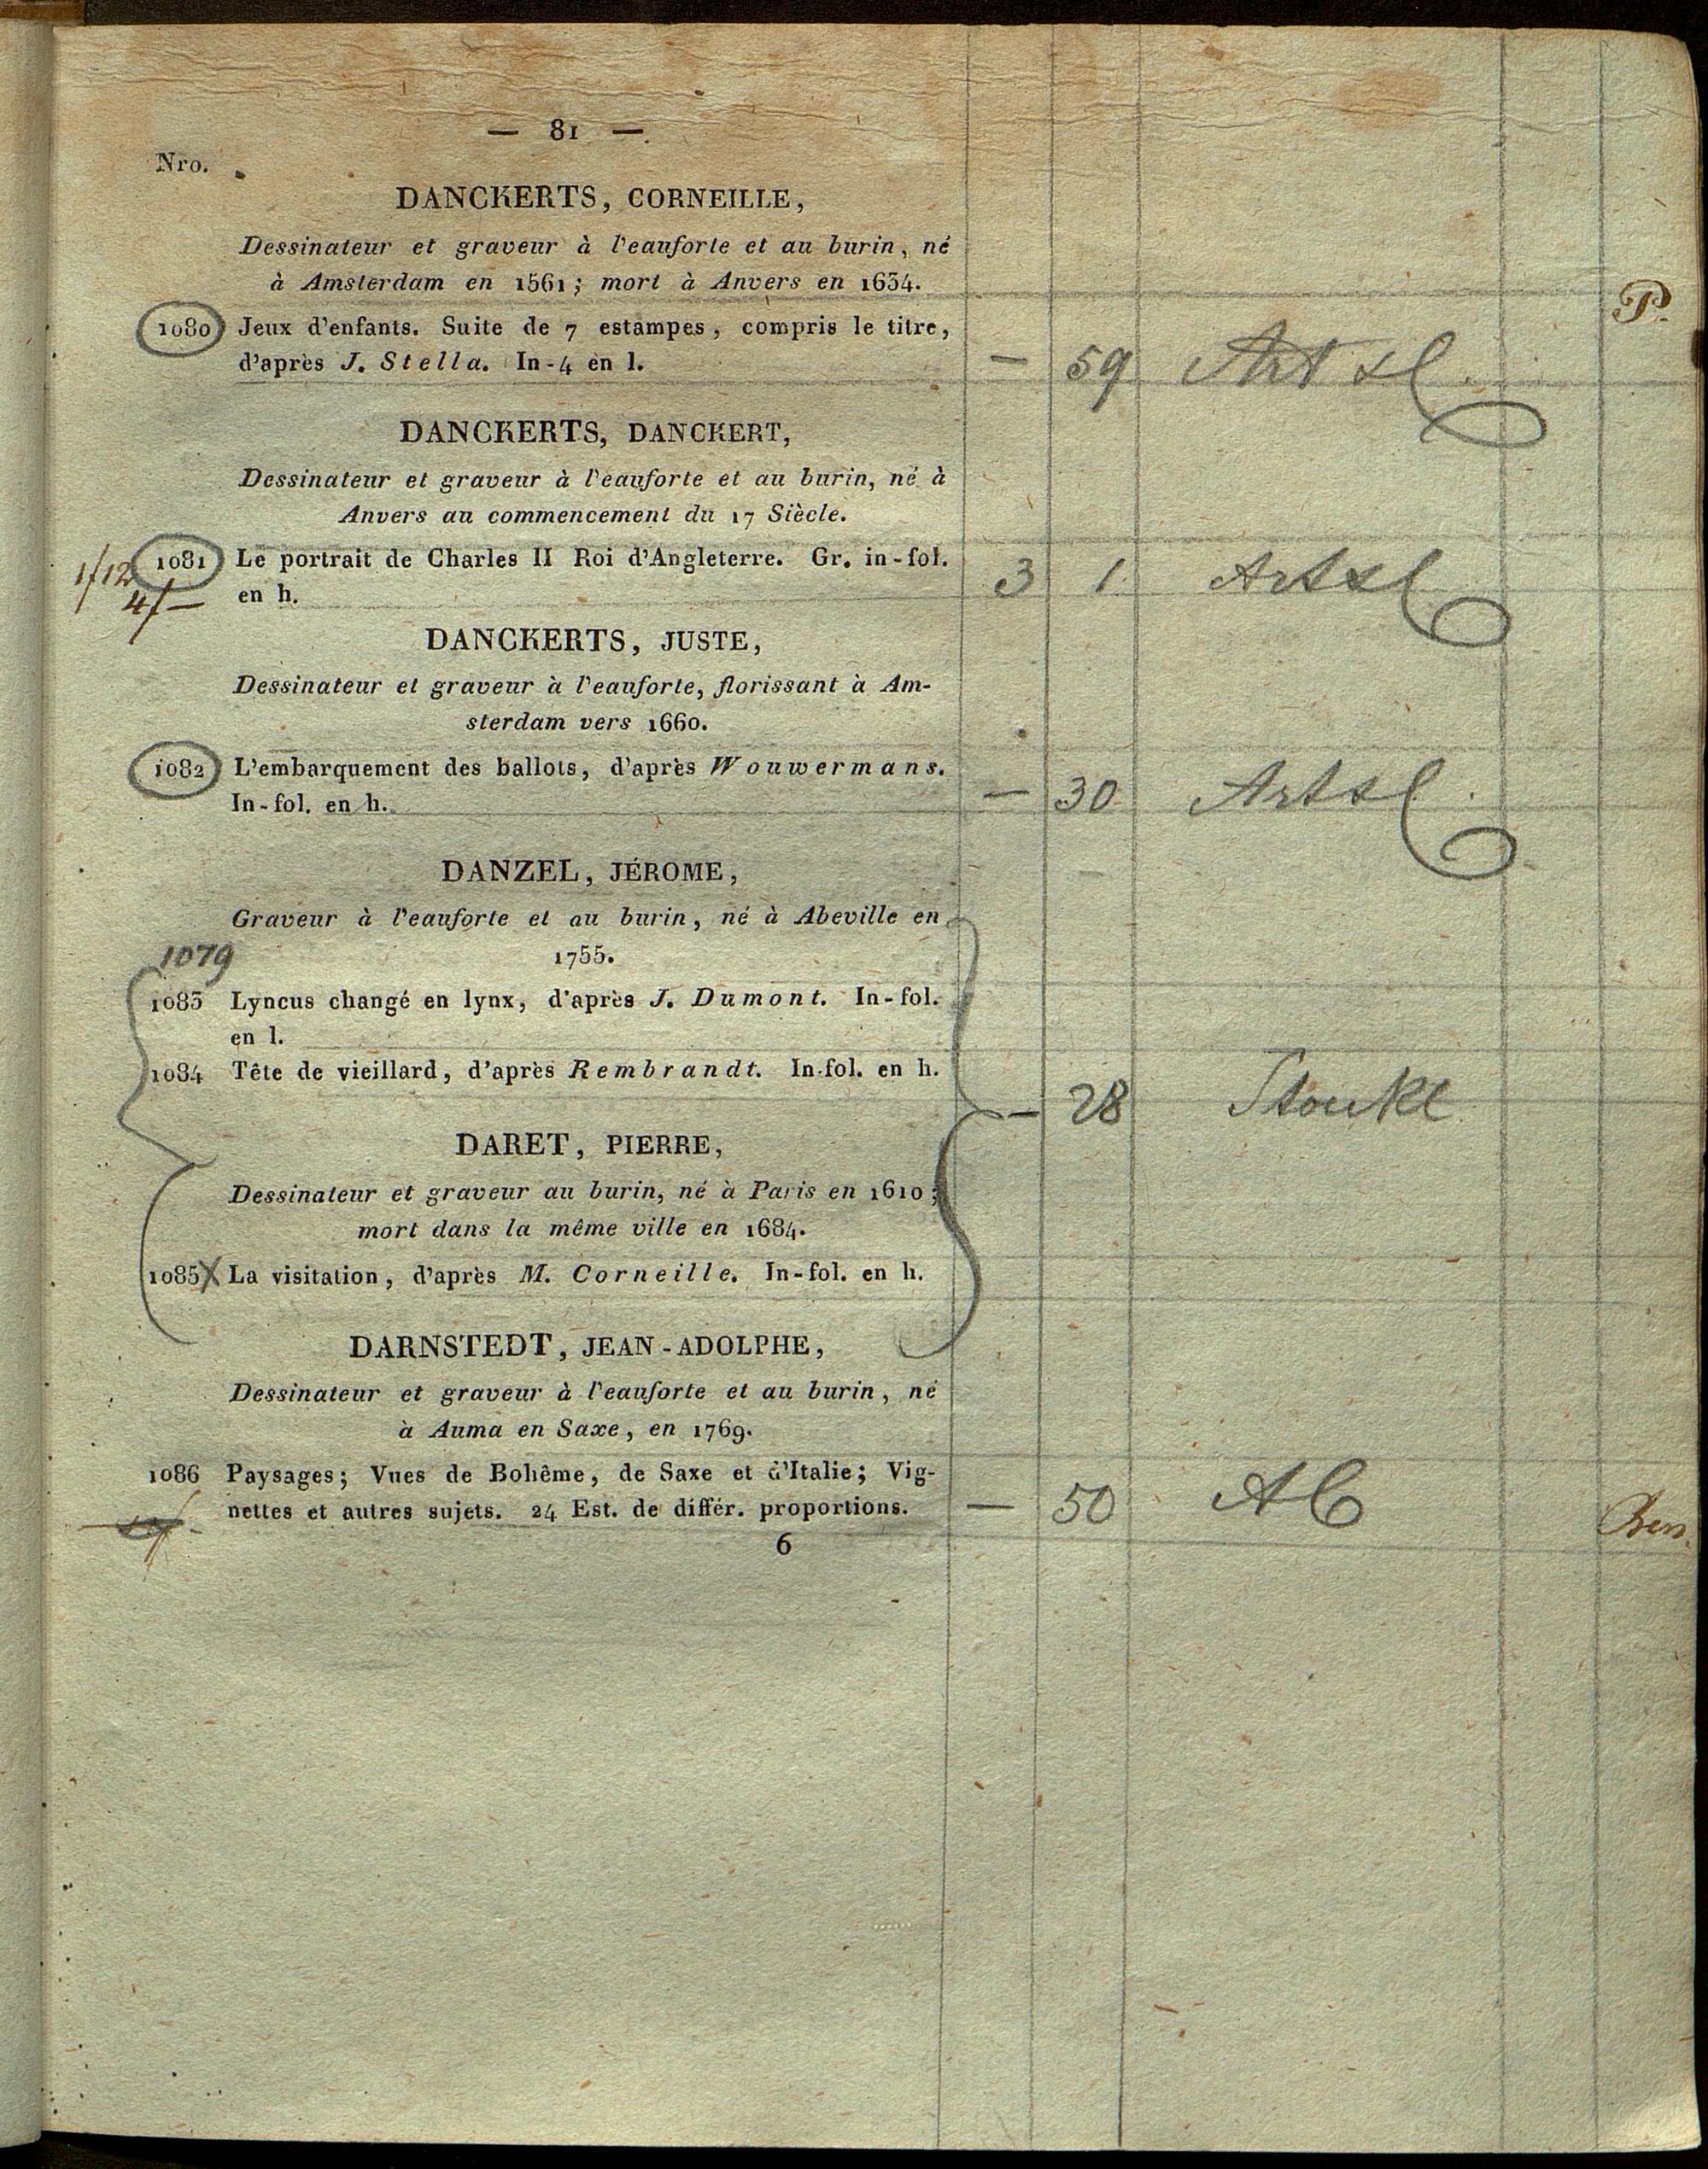 — 81 —
Nro.
DANCKERTS, CORNEILLE,
Dessinateur et graveur à l'eauforte et au burin, né
à Amsterdam en 1561; mort à Anvers en 1634.
P.
1080 Jeux d'enfants. Suite de 7 estampes, compris le titre,
d'après J. Stella. In-4 en l. — 59 Art
DANCKERTS, DANCKERT,
Dessinateur et graveur à l'eauforte et au burin, né à
Anvers au commencement du 17 Siècle.
1081 Le portrait de Charles II Roi d'Angleterre. Gr. in-fol.
1/12
4/—
en h. 3 1
DANCKERTS, JUSTE,
Dessinateur et graveur à l'eauforte, florissant à Am-
sterdam vers 1660.
1082 L'embarquement des ballots, d'après Wouwermans.
In-fol. en h. — 30
DANZEL, JÉROME,
Graveur à l'eauforte et au burin, né à Abeville en
1755.
1079
1083 Lyncus changé en lynx, d'après J. Dumont. In-fol.
en l.
1084 Tête de vieillard, d'après Rembrandt. In-fol. en h.
— 28
DARET, PIERRE,
Dessinateur et graveur au burin, né à Paris en 1610;
mort dans la même ville en 1684.
1085 X La visitation, d'après M. Corneille. In-fol. en h.
DARNSTEDT, JEAN-ADOLPHE,
Dessinateur et graveur à l'eauforte et au burin, né
à Auma en Saxe, en 1769.
1086 Paysages; Vues de Bohême, de Saxe et d'Italie; Vig-
nettes et autres sujets. 24 Est. de différ. proportions. — 50
6